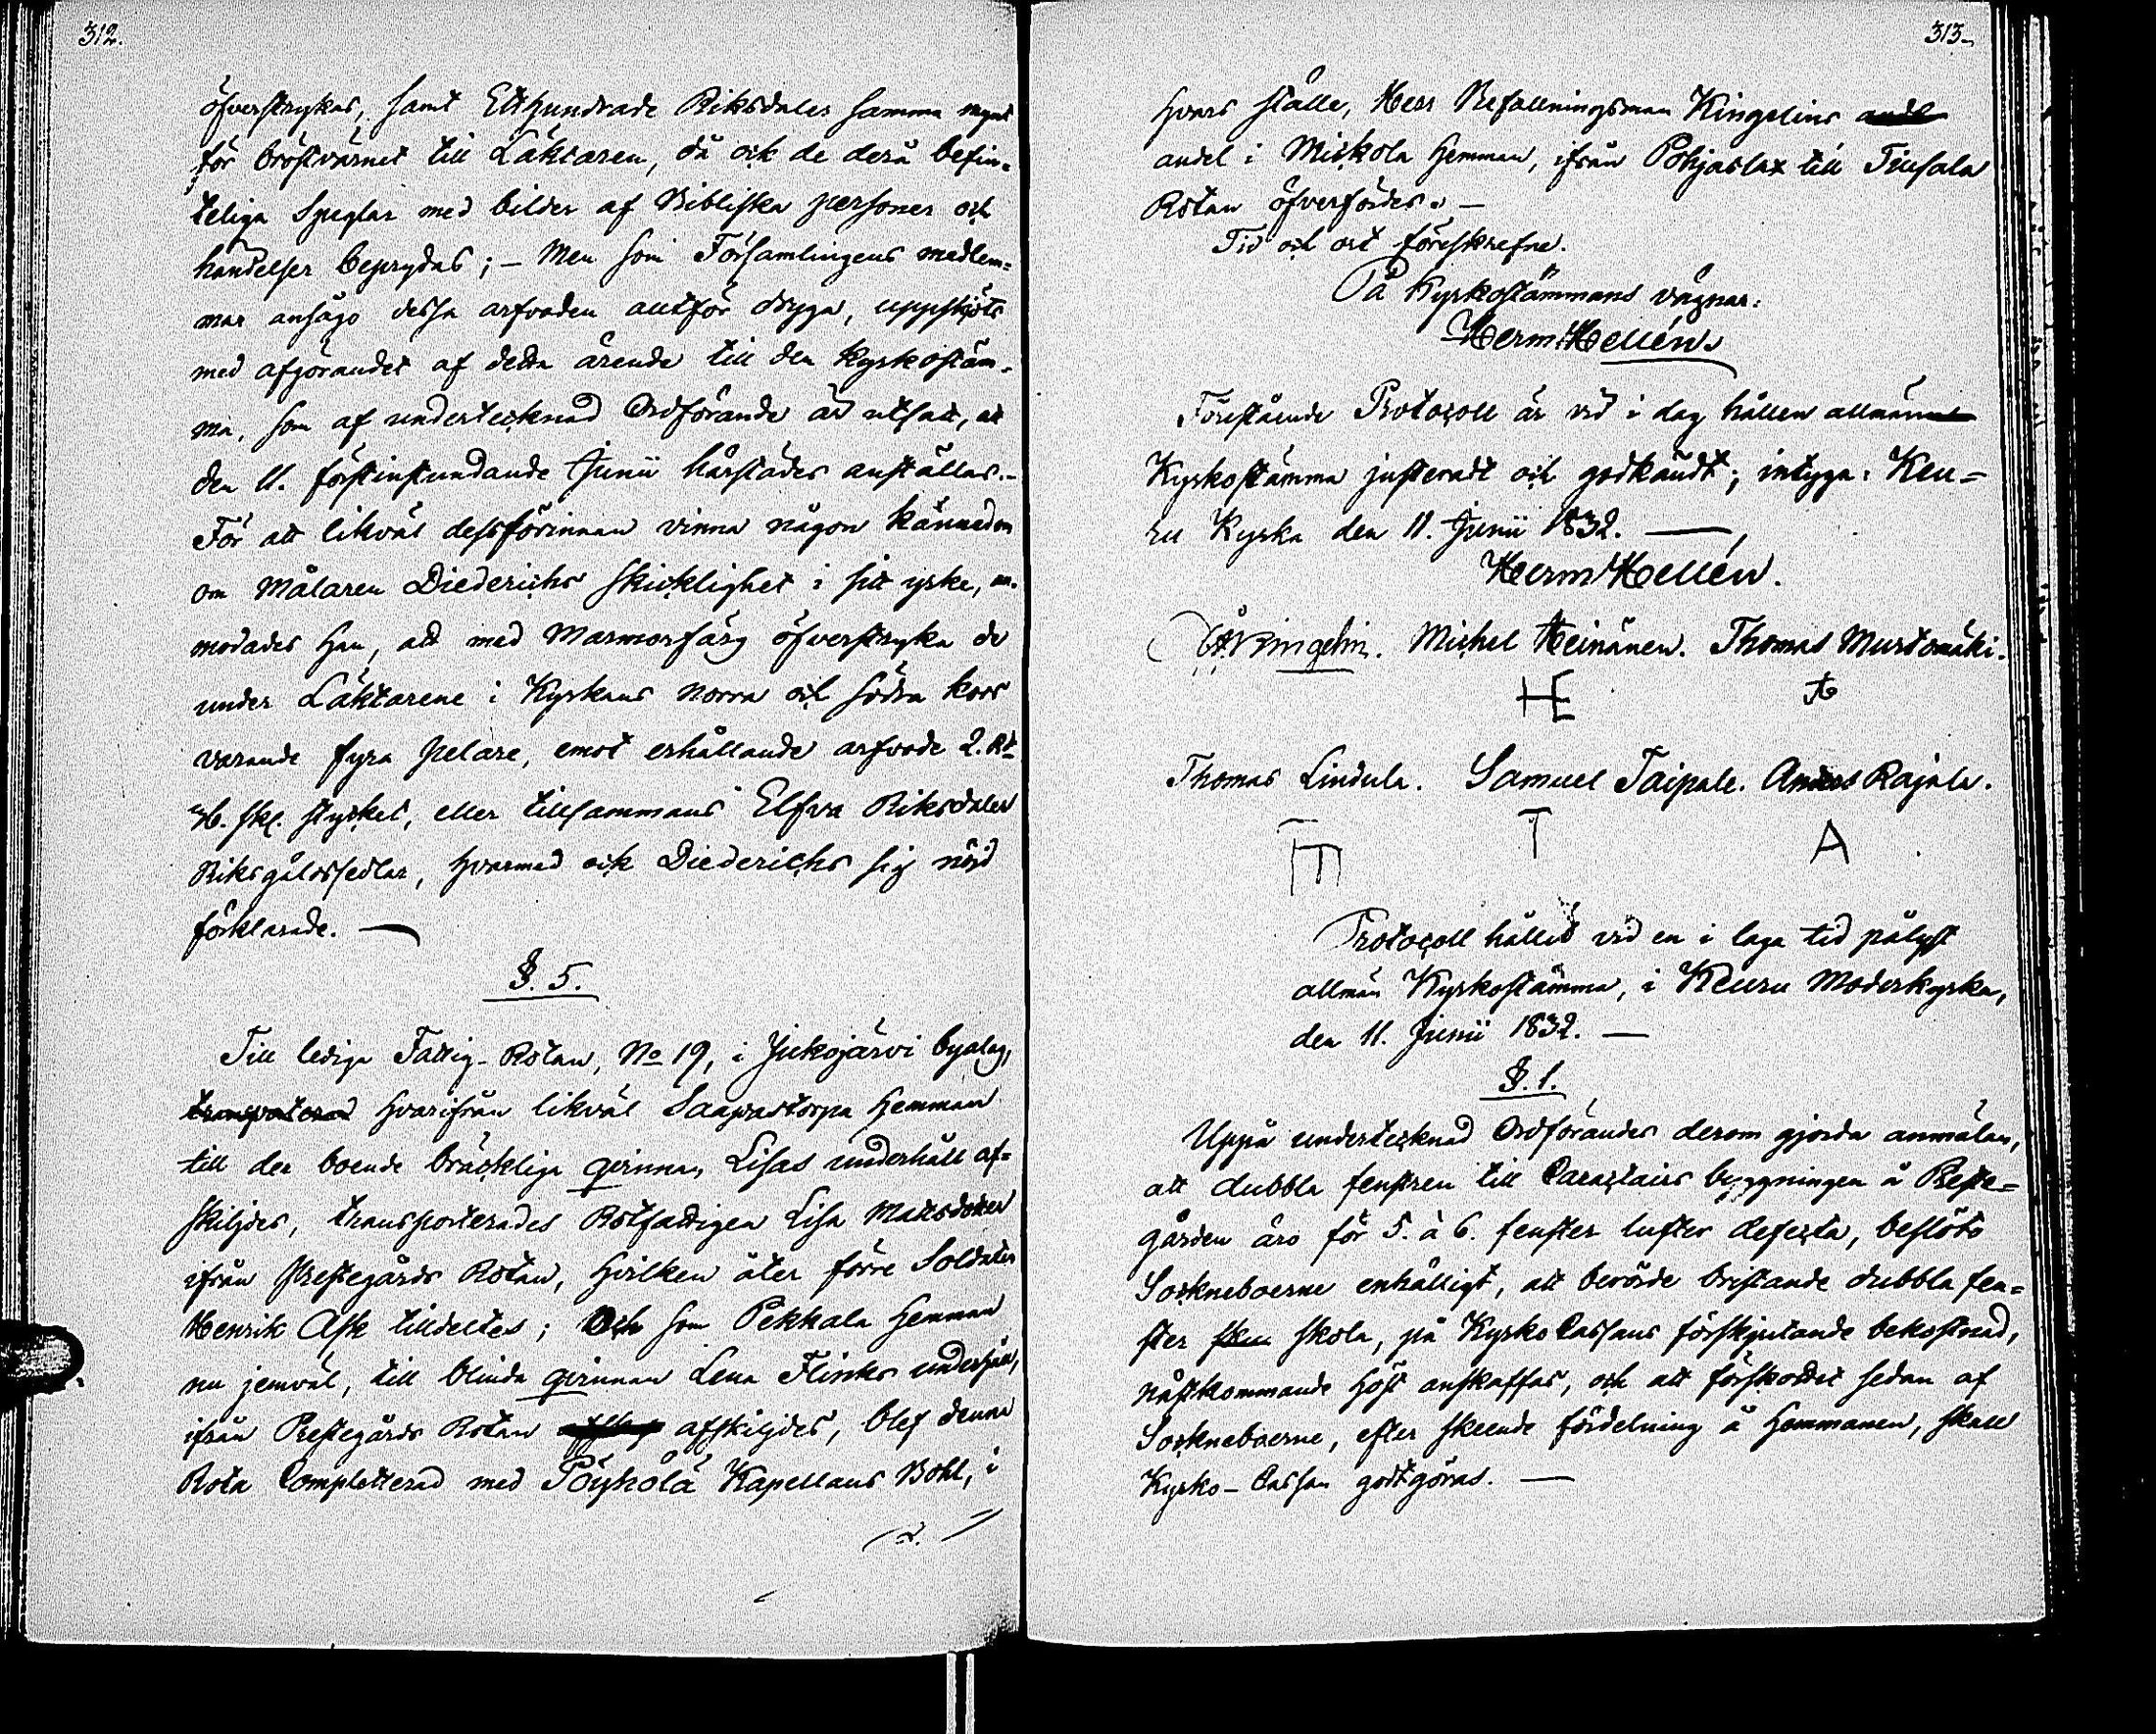 312.
öfverstrykas, samt Etthundrade Riksdaler samma mynt
för bröstvärnet till Läktaren, då ock de derå befin=
teliga Speglar med bilder af Bibliska personer och
händelser beprydas; – Men som Församlingens medlem=
mar ansågo dessa arfvoden alltför dryga, uppskjöts
med afgörandet af detta ärende till den Kyrkostäm=
ma, som af undertecknad Ordförande är utsatt, at
den 11. förstinstundande Junii härstädes anställas. –
För att likväl dessförinnan vinna någon kännedom
om Målaren Diederichs skicklighet i sitt yrke, an-
modades Han, att med Marmorfärg öfverstryka de
under Läktarene i Kyrkans norra och södra kors
varande fyra pelare, emot erhållande arfvode 2. Rd
skl. stycket, eller tillsammans Elfva Riksdaler
Riksgäldssedlar, hvarmed ock Diederichs sig nöjd
förklarade. —
§. 5.
Till lediga Fattig-Rotan, No 19, i Jukojärvi byalag,
hvarifrån likväl Saaprastorpa Hemman
till der boende bräckliga qvinnan Lisas underhåll af=
skiljdes, transporterades Rotfattigen Lisa Mattsdotter
ifrån Prestegårds Rotan, hvilken åter förre Soldaten
Henrik Ask tilldeltes; Och som Pekkala Hemman
nu jemväl, till blinda qvinnan Lena Flinks underhåll,
ifrån Prestegårds Rotan afskiljdes, blef denna
Rota Completterad med Pöyhölä Kapellans Bohl, i
313.
hvars ställe, Herr Befallningsman Kingelins
andel i Miskola Hemman, ifrån Pohjaslax till Tiusala
Rotan öfverfördes. –
Tid och ort föreskrefne.
På Kyrkostämmans vägnar:
Herm. Hellén.
Förestående Protocoll är vid i dag hållen allmän
Kyrkostämma justeradt och godkändt; intyga: Keu=
ru Kyrka den 11. Junii 1832. —
Herm Hellén.
Kingelin. Michel Heinänen. Thomas Murtomäki.
HE
Thomas Lindula. Samuel Taipale. Anders Rajala.
T A
Protocoll hållit vid en i laga tid pålyst
allmän Kyrkostämma, i Keuru Moderkyrka,
den 11. Junii 1832. —
§. 1.
Uppå undertecknad Ordförandes derom gjorda anmälan,
att dubbla fenstren till Caractairs byggningen å Preste=
gården äro för 5. à 6. fenster lufter defecta, beslöto
Sockneboerne enhälligt, att berörde bristande dubbla fen=
ster skola, på Kyrko Cassans förskjutande bekostnad,
nästkommande Höst anskaffas, och att förskottet sedan af
Sockneboerne, efter skeende fördelning å Hemmanen, skall
Kyrko-Cassan godtgöras. —